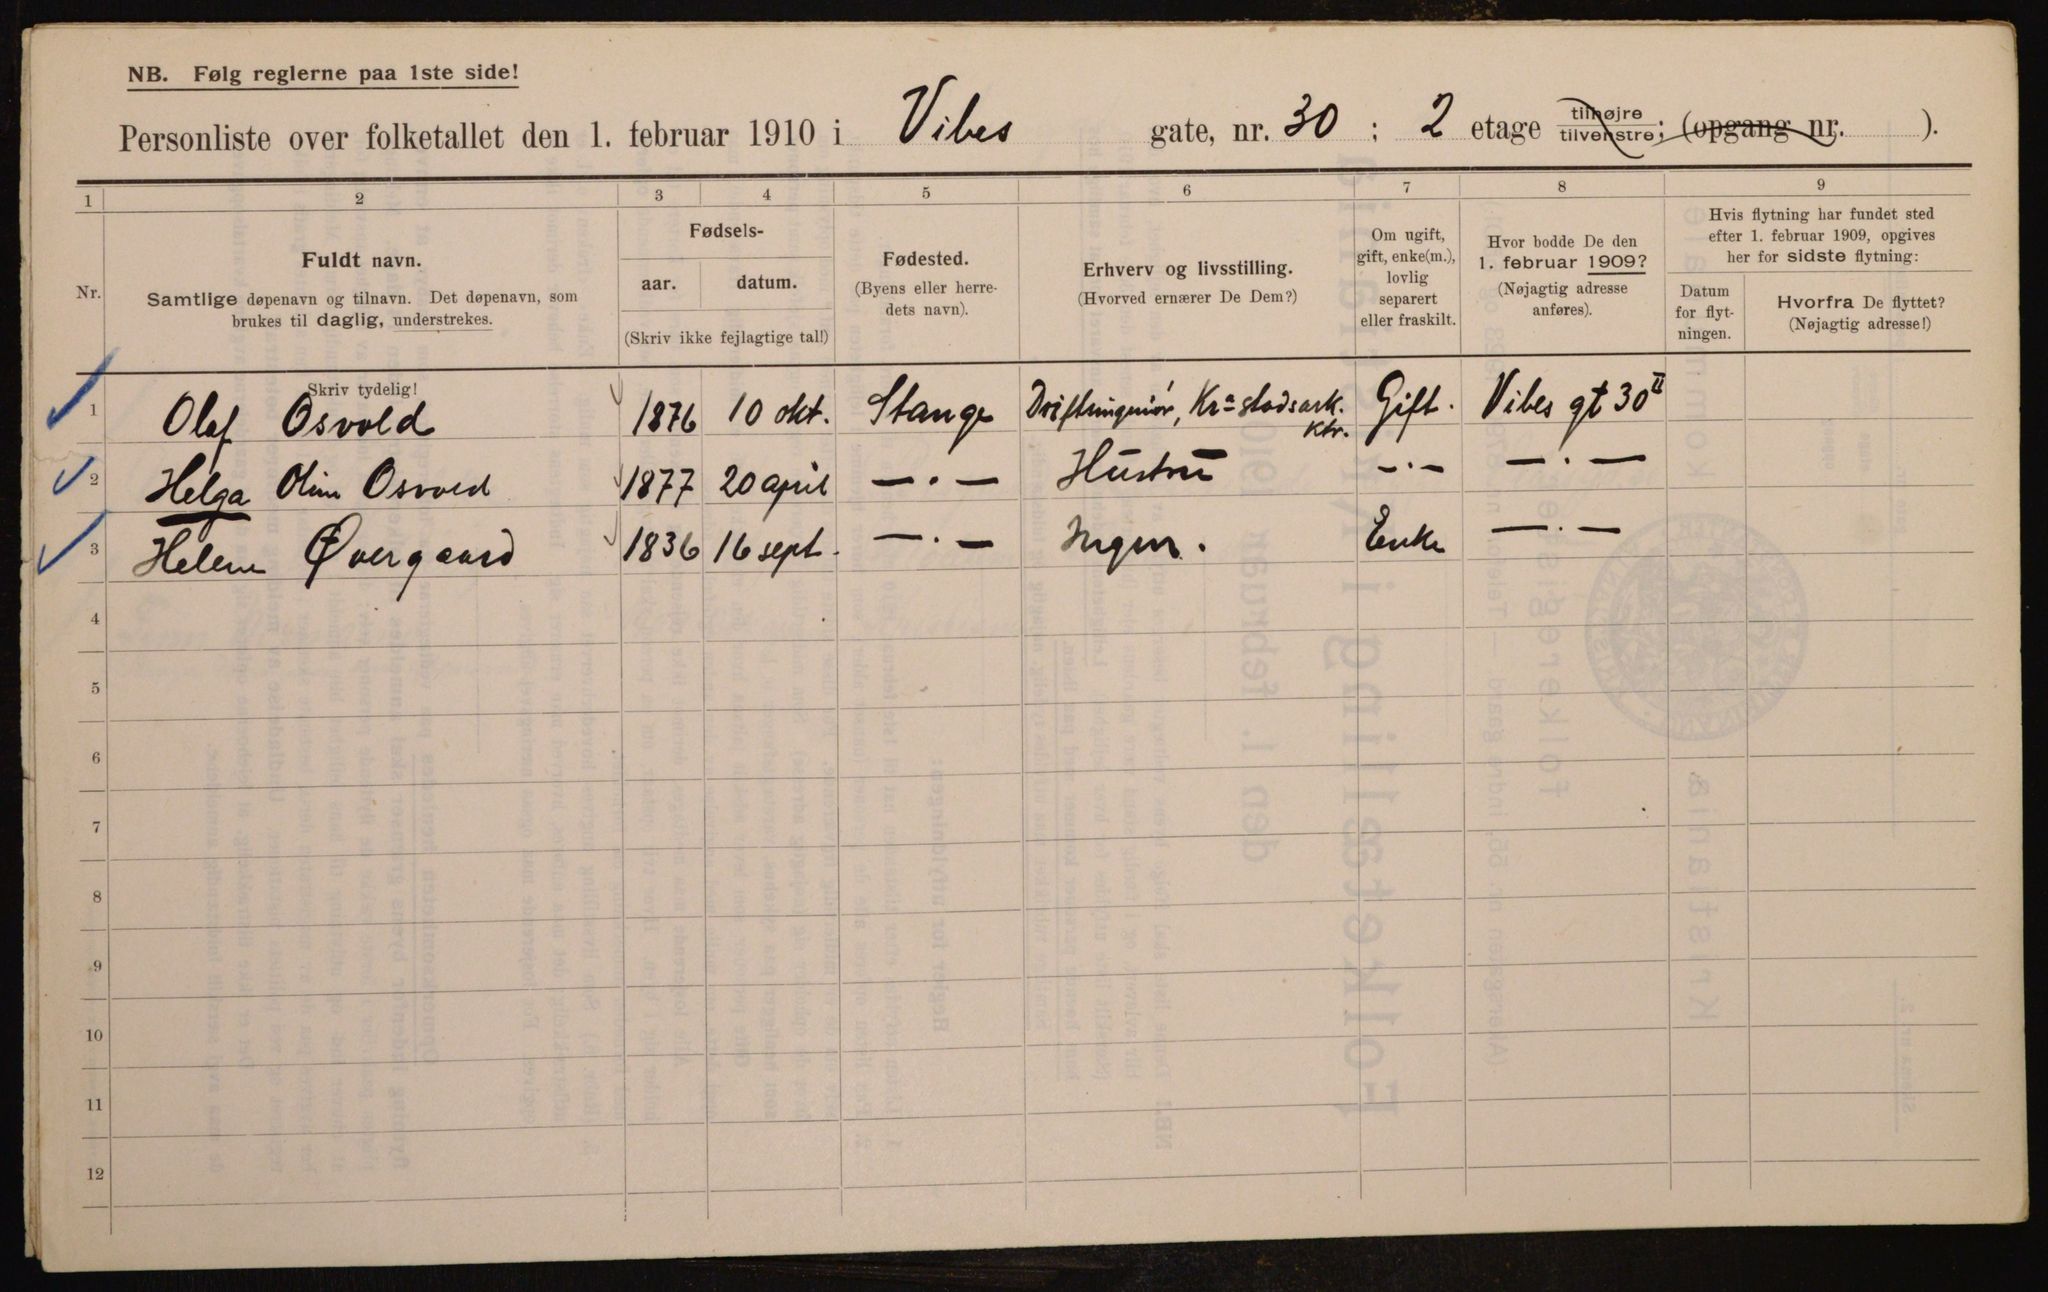 NB. Følg reglerne paa 1ste side!
Personliste over folketallet den 1. februar 1910 i Vibes gate, nr. 30 ; 2 etage tilhøjre tilvenstre; (opgang nr. ).
1 2 3 4 5 6 7 8 9
Nr.
Fuldt navn.
Samtlige døpenavn og tilnavn. Det døpenavn, som
brukes til daglig, understrekes.
Fødsels-
aar. datum.
(Skriv ikke fejlagtige tal!)
Fødested.
(Byens eller herre-
dets navn).
Erhverv og livsstilling.
(Hvorved ernærer De Dem?)
Om ugift,
gift, enke(m.),
lovlig
separert
eller fraskilt.
Hvor bodde De den
1. februar 1909?
(Nøjagtig adresse
anføres).
Hvis flytning har fundet sted
efter 1. februar 1909, opgives
her for sidste flytning:
Datum
for flyt-
ningen.
Hvorfra De flyttet?
(Nøjagtig adresse!)
Skriv tydelig!
1 Olaf Osvold 1876 10 okt. Stange Driftsingeniør, Kra stadsark. Gift. Vibes gt 30 II
ktr.
2 Helga Oline Osvold 1877 20 april —·— Hustru —·— —·—
3 Helene Øvergaard 1836 16 sept. —·— Ingen. Enke —·—
4
5
6
7
8
9
10
11
12